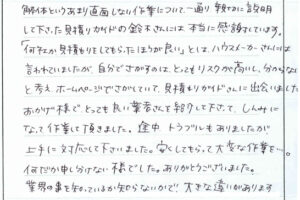 解体というあまり直面しない作業について一通り親切に説明
して下さった見積りガイドの鈴木さんには本当に感謝しています。
何社か見積もりをしてもらったほうが良い」とは、ハウスメーカーさんには
言われていましたが、自分でさがすのは、とてもリスクが高いし、分からない
と考え ホームページでさがしていて、見積もりガイドさんに出会いました
おかげ様で、とっても良い業者さんを紹介して下さって、しんみに
なって作業して頂きました。途中 トラブルもありましたが
上手に対応して下さいました。安くしてもらって大変な作業を…。
何だか申し分けない様でした。ありがとうございました。
業界の事を知っているか知らないかで!! 大きな違いがあります